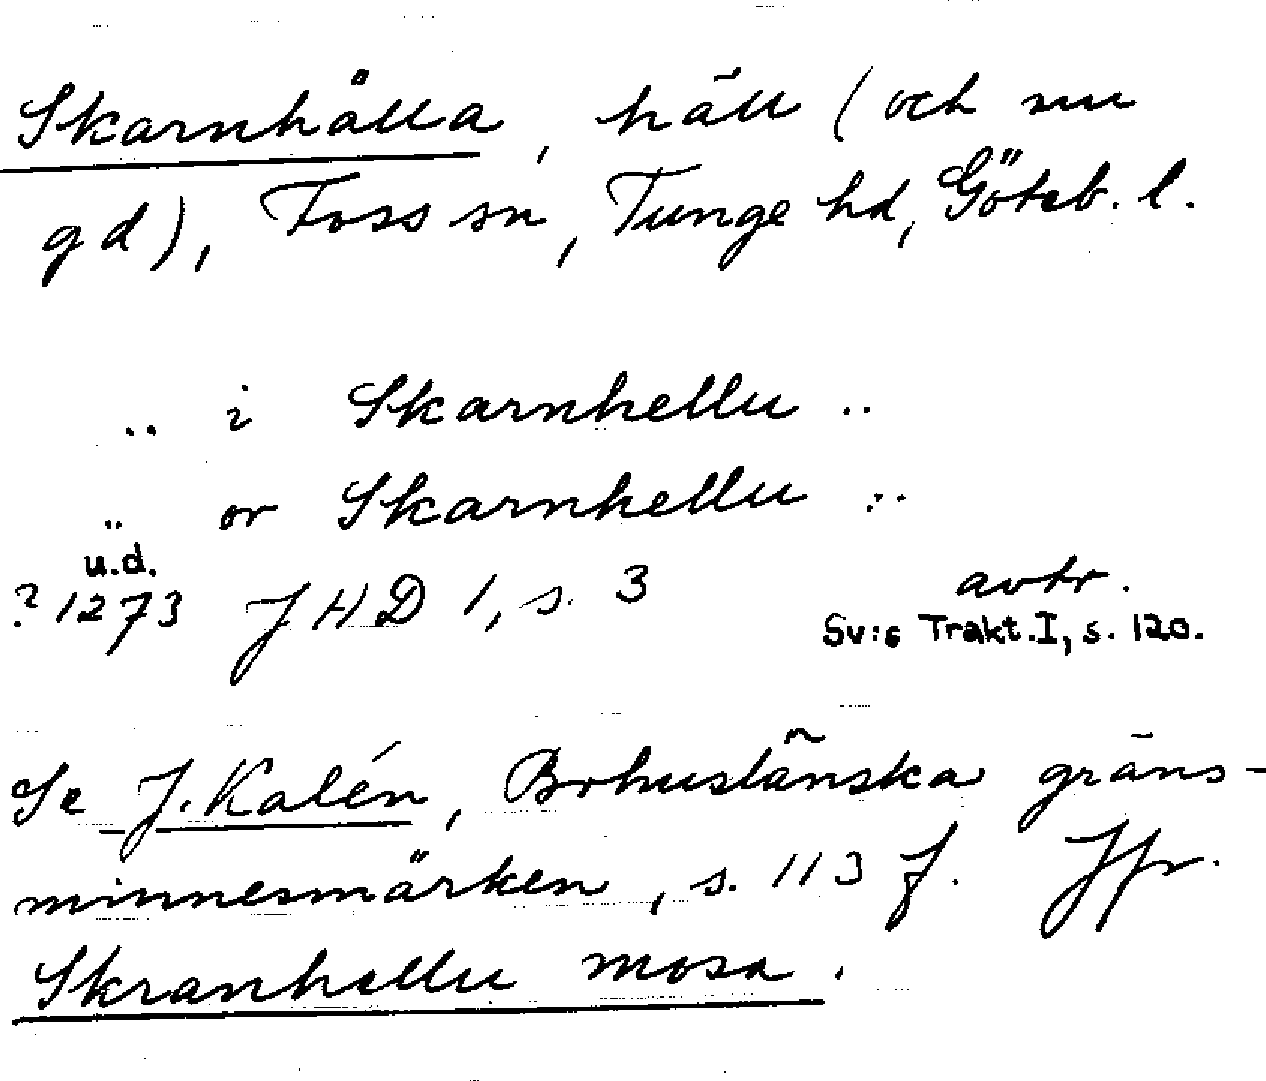 Skarnhälla, häll (och nu
gd), Foss sn, Tunge hd, Göteb. l.
.. i Skarnhellu ..
.. or Skarnhellu ..
u.d.
? 1273 JHD 1, s. 3 avtr.
Sv:s Trakt. I, s. 120.
Se J. Kalén, Bohuslänska gräns-
minnesmärken, s. 113 f. Jfr.
Skranhellu mosa.